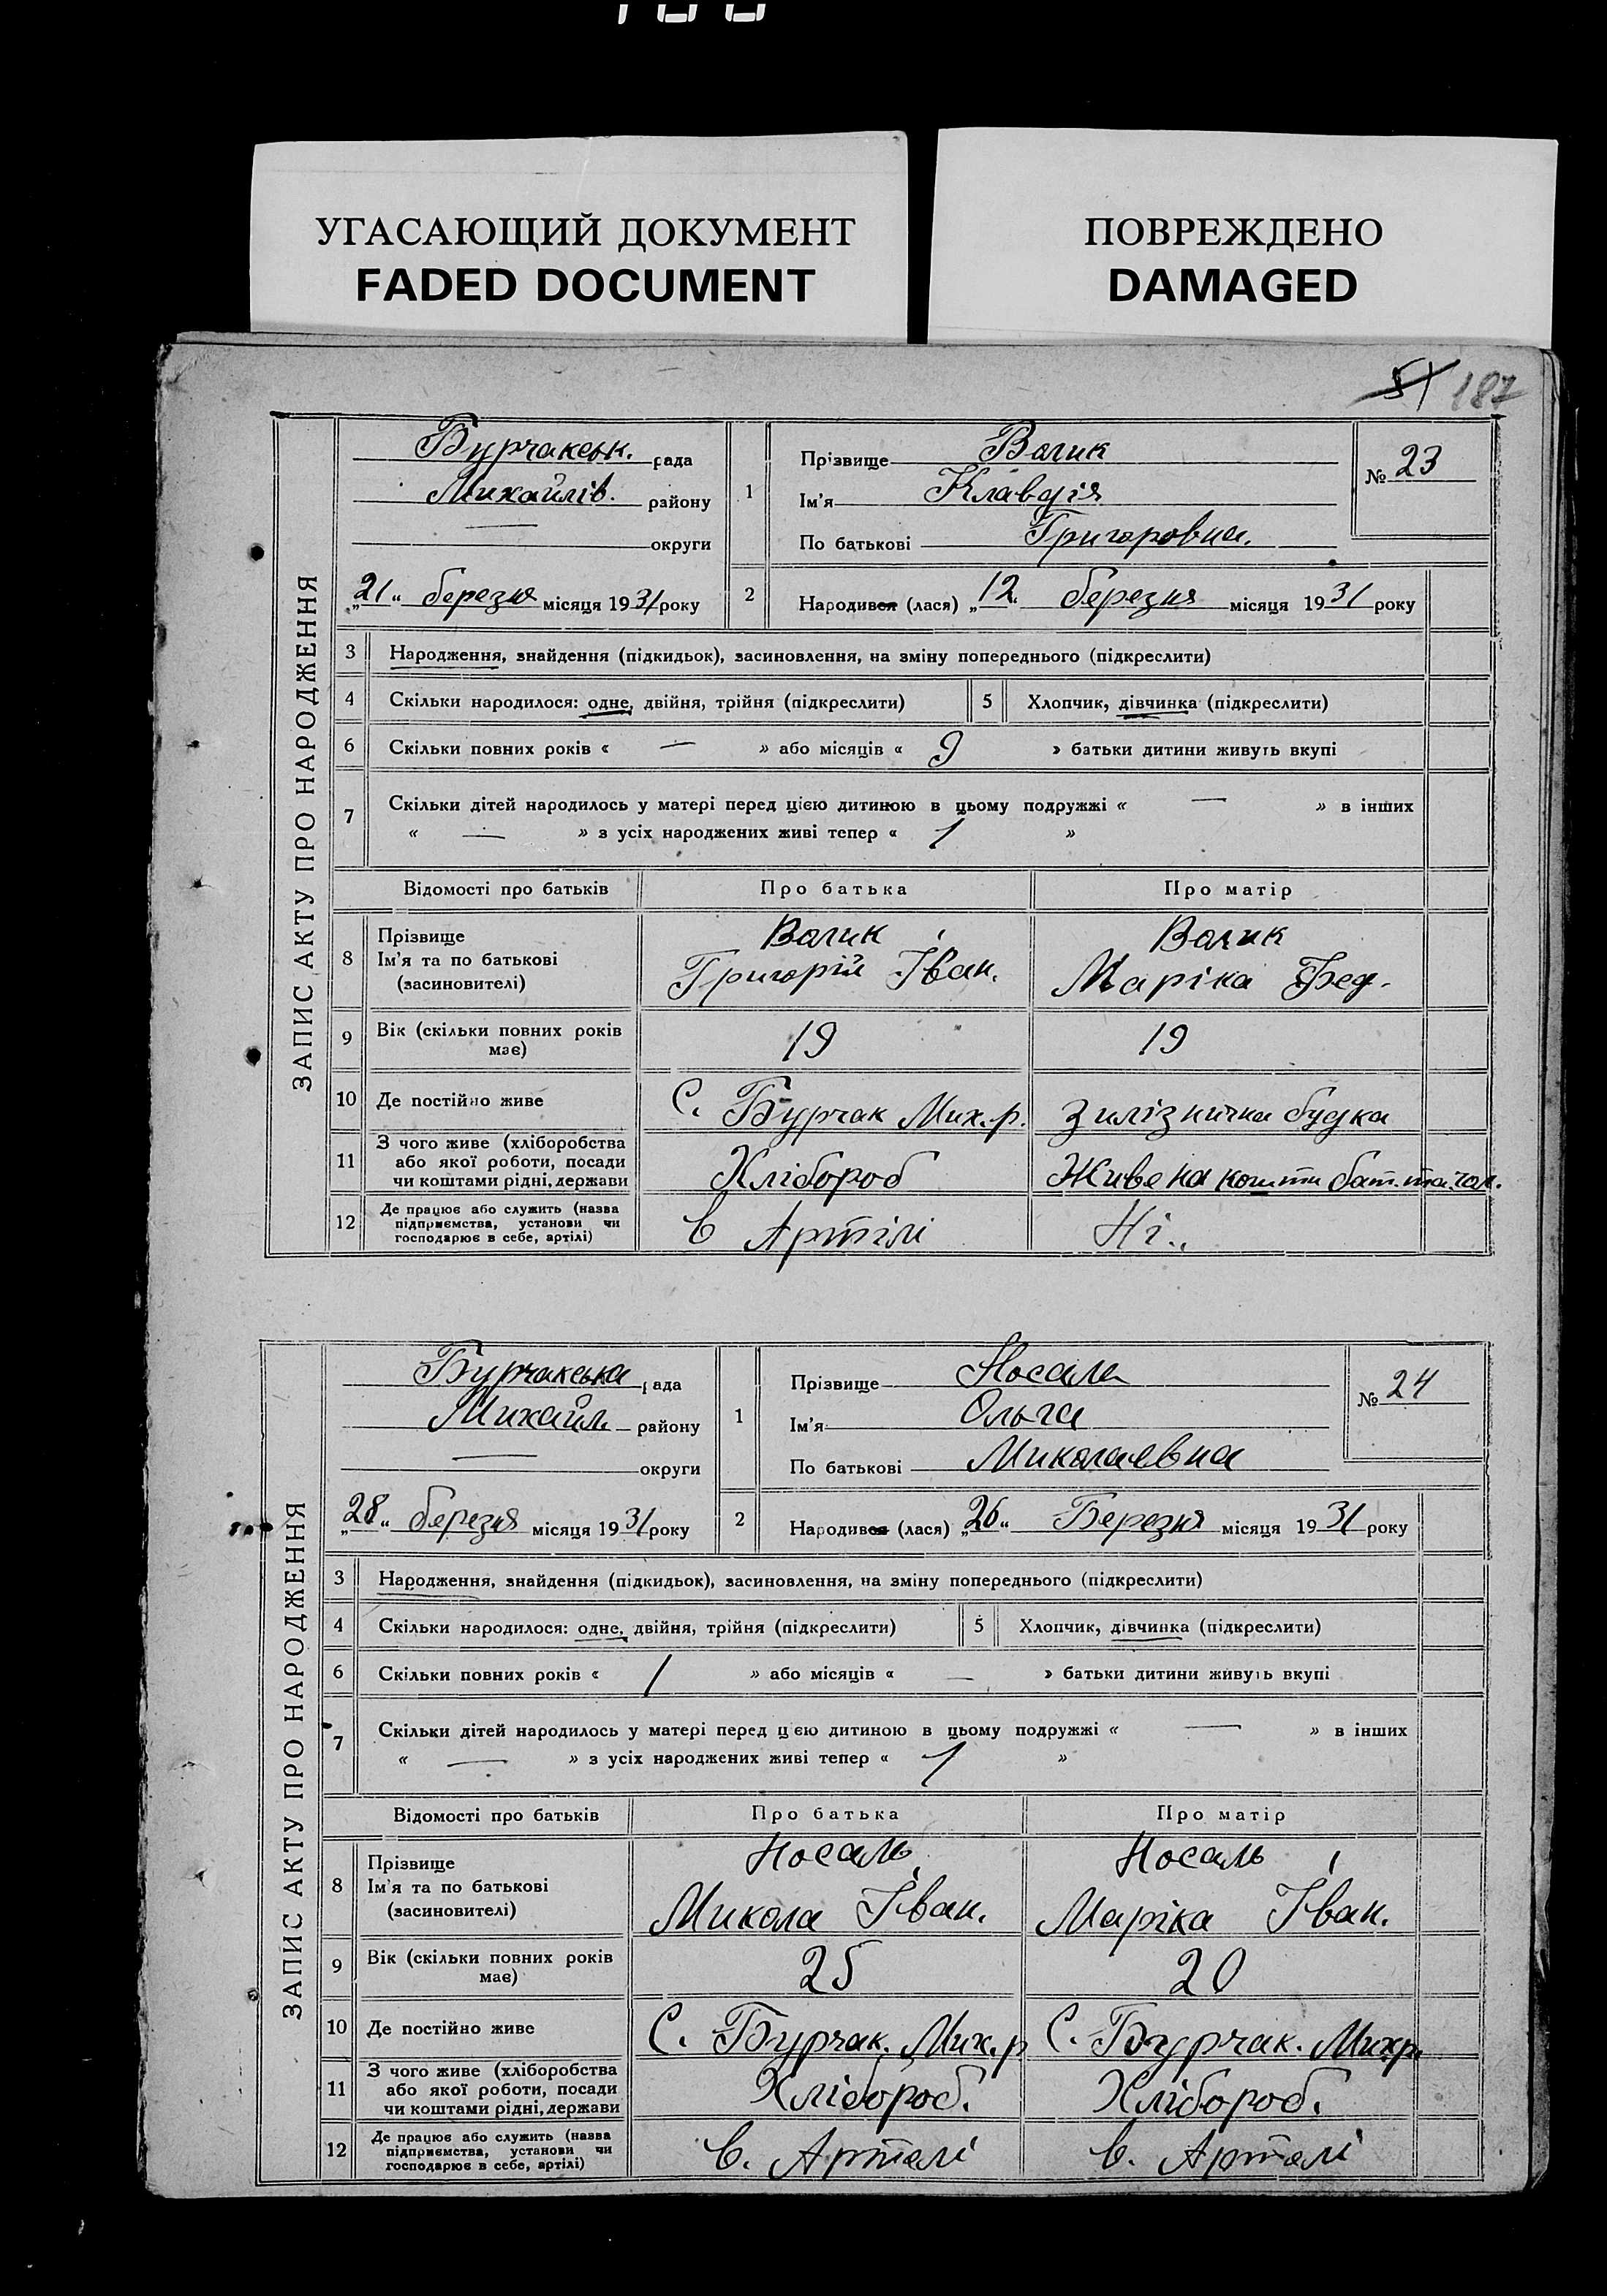 УГАСАЮЩИЙ ДОКУМЕНТ
FADED DOCUMENT
ПОВРЕЖДЕНО
DAMAGED
51 187
ЗАПИС АКТУ ПРО НАРОДЖЕННЯ
Бурчакськ. рада
Михайлів. району
— округи
„21“ березня місяця 1931 року
1
Прізвище Волик
Ім'я Клавдія
По батькові Григоровна.
№ 23
2 Народився (лася) „12“ березня місяця 1931 року
3 Народження, знайдення (підкидьок), засиновлення, на зміну попереднього (підкреслити)
4 Скільки народилося: одне, двійня, трійня (підкреслити) 5 Хлопчик, дівчинка (підкреслити)
6 Скільки повних років « — » або місяців « 9 » батьки дитини живуть вкупі
7 Скільки дітей народилось у матері перед цією дитиною в цьому подружжі « — » в інших
« — » з усіх народжених живі тепер « 1 »
Відомості про батьків Про батька Про матір
8 Прізвище Ім'я та по батькові (засиновителі)
Волик Волик
Григорій Іван. Маріка Фед.
9 Вік (скільки повних років має) 19 19
10 Де постійно живе С. Бурчак Мих.р. Зилізнична будка
11 З чого живе (хліборобства або якої роботи, посади чи коштами рідні, держави Хлібороб Живе на кошти бат. та чол.
12 Де працює або служить (назва підприємства, установи чи господарює в себе, артілі) в Артілі Ні..
ЗАПИС АКТУ ПРО НАРОДЖЕННЯ
Бурчакська рада
Михайл. району
— округи
„28“ березня місяця 1931 року
1
Прізвище Носаль
Ім'я Ольга
По батькові Миколаевна
№ 24
2 Народився (лася) „26“ Березня місяця 1931 року
3 Народження, знайдення (підкидьок), засиновлення, на зміну попереднього (підкреслити)
4 Скільки народилося: одне, двійня, трійня (підкреслити) 5 Хлопчик, дівчинка (підкреслити)
6 Скільки повних років « 1 » або місяців « — » батьки дитини живуть вкупі
7 Скільки дітей народилось у матері перед цією дитиною в цьому подружжі « — » в інших
« — » з усіх народжених живі тепер « 1 »
Відомості про батьків Про батька Про матір
8 Прізвище Ім'я та по батькові (засиновителі)
Носаль Носаль
Микола Іван. Маріка Іван.
9 Вік (скільки повних років має) 25 20
10 Де постійно живе С. Бурчак. Мих.р С. Бурчак. Мих.р.
11 З чого живе (хліборобства або якої роботи, посади чи коштами рідні, держави Хлібороб. Хлібороб.
12 Де працює або служить (назва підприємства, установи чи господарює в себе, артілі) в. Артелі в. Артелі